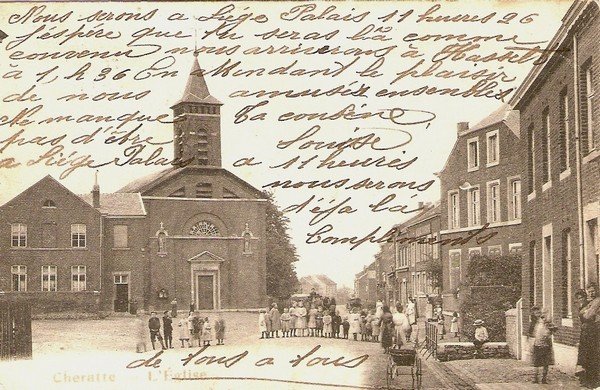 Nous serons a Liége Palais 11 heures 26
J'éspère que tu seras là comme
convenu nous arriverons à Hasselt
à 1 h 26 En attendant le plaisir
de nous amuser ensembles
Ta cousine,
manque
pas d'étre Louise
a Liége Palais a 11 heures
nous serons
déja là
Compliments
de tous a tous
Cheratte - L'Église